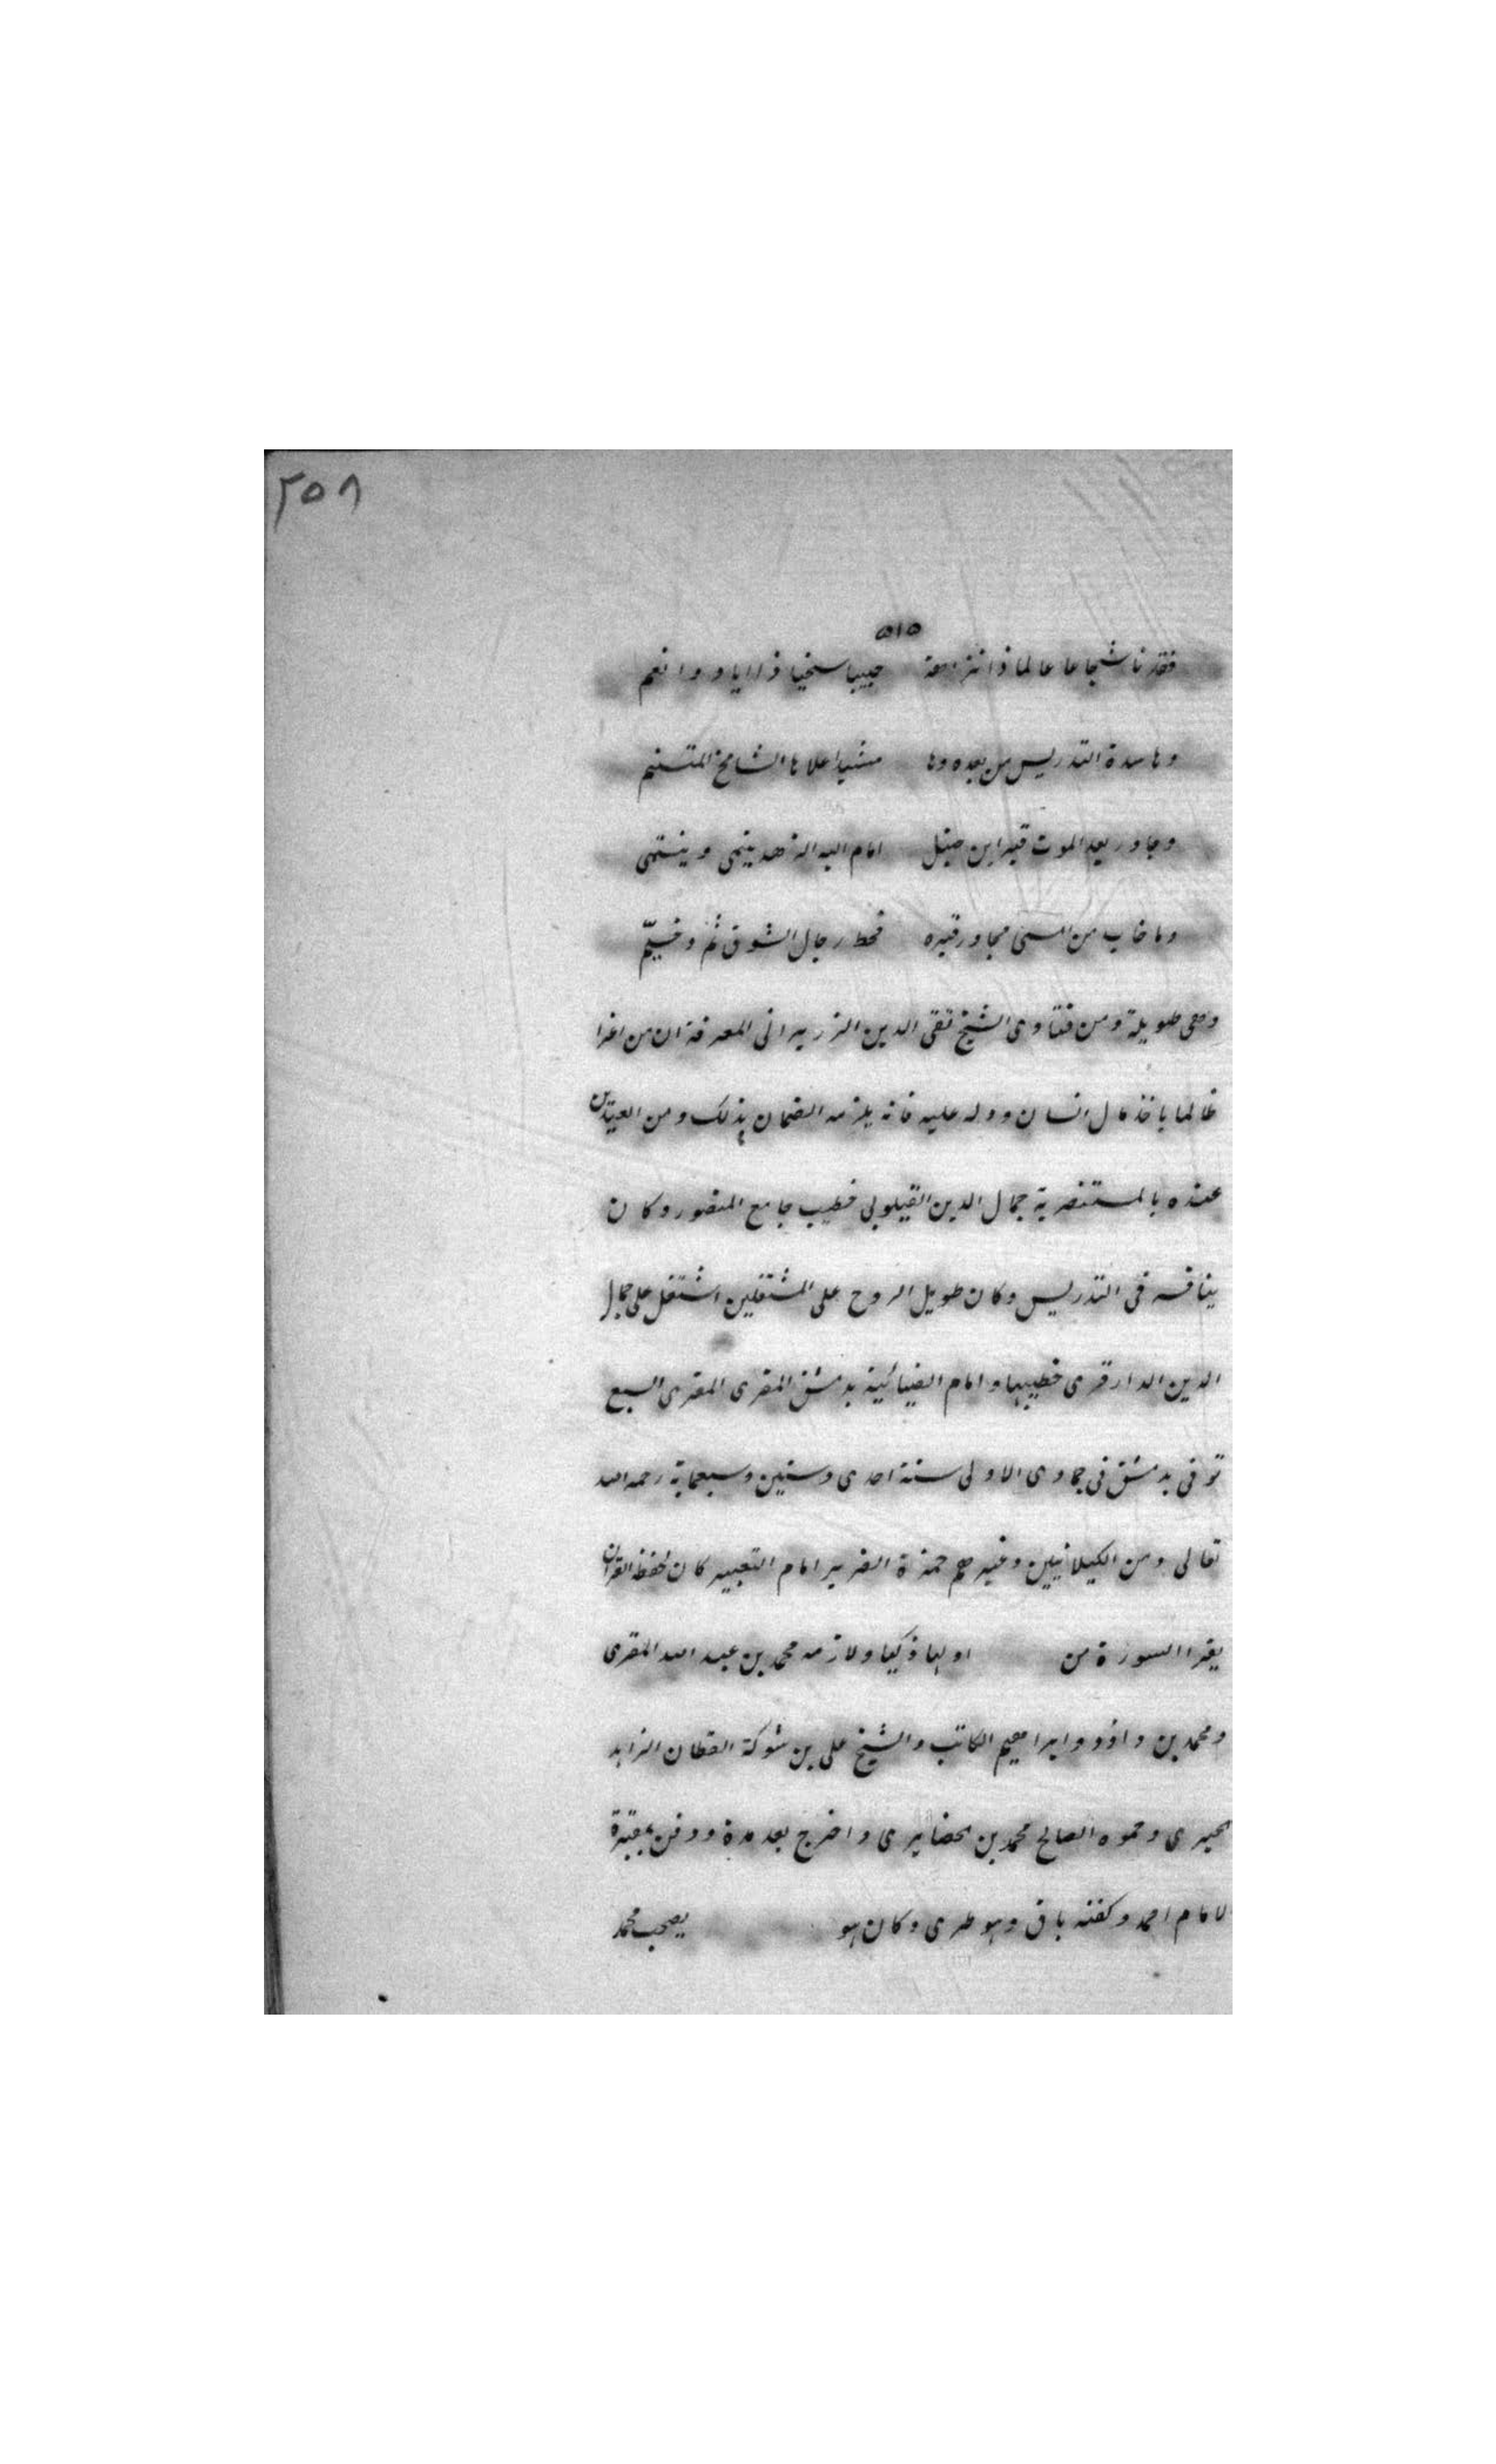 ٢٥٨
٥١٥
فقدنا شجاعا عالما ذا نزاهة حبيبا سخيا ذا اياد وانعم
وها سدة التدريس من بعده وها مشيد اعلاها الشامخ المتسنم
وجاور بعد الموت قبر ابن حنبل امام اليه الزهد ينمى وينتمى
وما خاب من امسى مجاور قبره فحط رحال الشوق ثم وخيّم
وهى طويلة ومن فتاوى الشيخ تقى الدين الزريرانى المعرفة ان من اغرا
ظالما باخذ مال انسان ودله عليه فانه يلزمه الضمان بذلك ومن المعيدين
عنده بالمستنصرية جمال الدين القيلوبى خطيب جامع المنصور وكان
ينافسه فى التدريس وكان طويل الروح على المشتغلين اشتغل على جمال
الدين الدارقزى خطيبها وامام الضيائية بدمشق المقرى المقرى السبع
توفى بدمشق فى جمادى الاولى سنة احدى وستين وسبعماية رحمه الله
تعالى ومن الكيلانيين وغيرهم حمزة الضرير امام التعبير كان يحفظ القران
يقرا السورة من اولها ذكيا ولازمه محمد بن عبد الله المقرى
ومحمد بن داود وابراهيم الكاتب والشيخ على بن شوكة القطان الزاهد
وحموه الصالح محمد بن واخرج بعد مدة ودفن بمقبرة
الامام احمد وكفنه باق وهو طرى وكان هو يصحب محمد